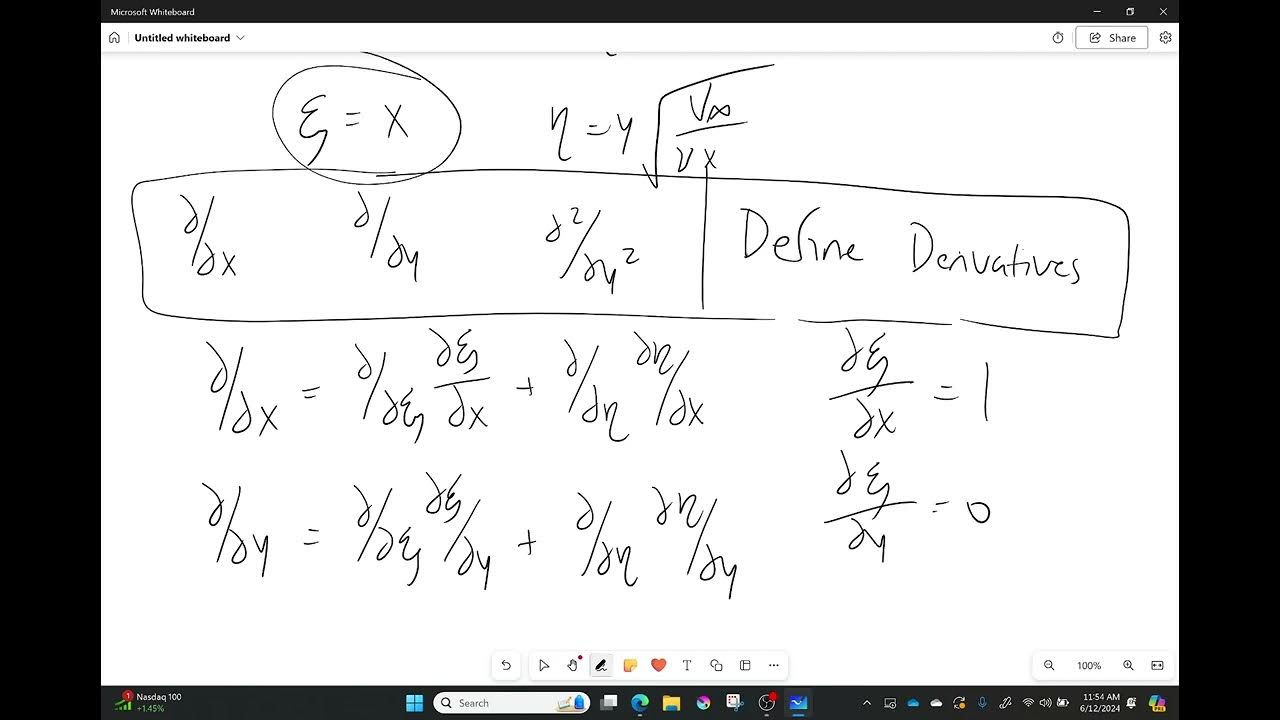 Microsoft Whiteboard
Untitled whiteboard
Share
ξ = x η = y √(V∞/νx)
∂/∂x ∂/∂y ∂²/∂y² Define Derivatives
∂/∂x = ∂/∂ξ ∂ξ/∂x + ∂/∂η ∂η/∂x ∂ξ/∂x = 1
∂/∂y = ∂/∂ξ ∂ξ/∂y + ∂/∂η ∂η/∂y ∂ξ/∂y = 0
T
100%
1 Nasdaq 100
+1.45%
Search
11:54 AM
6/12/2024